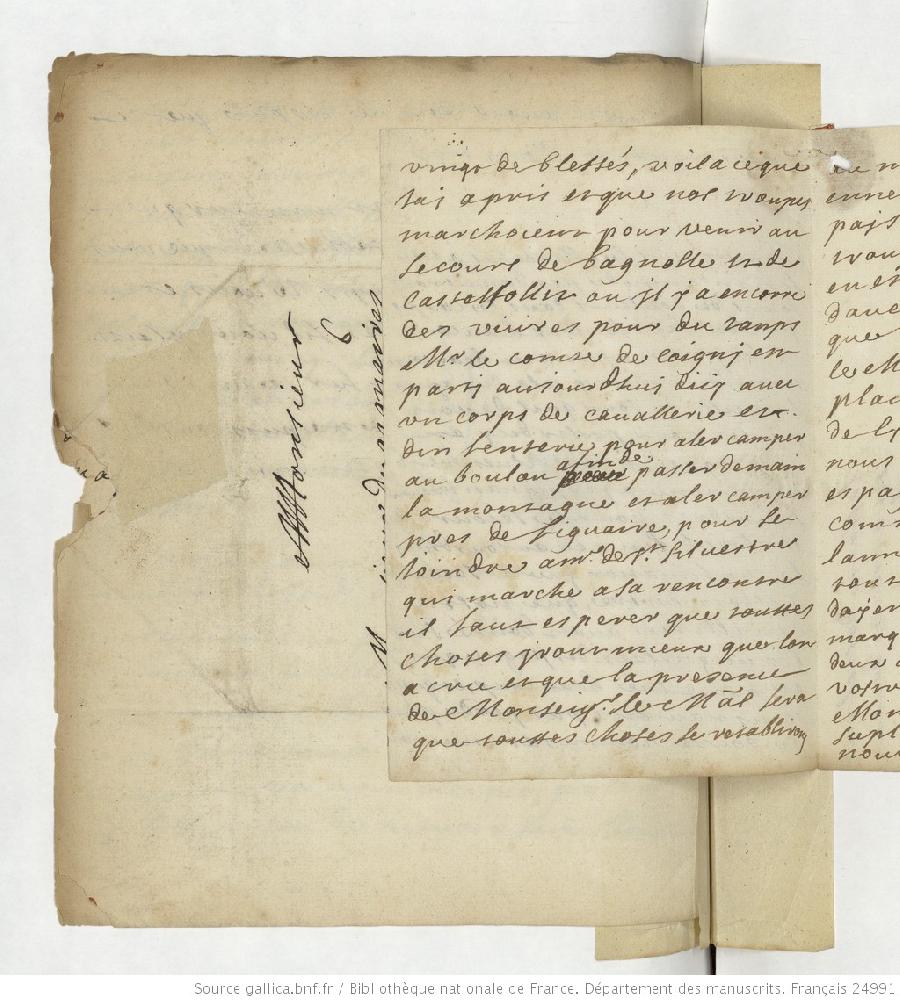 vingt de blessés, voila ceque
iai apris et que nos troupes
marchoient pour venir au
secours de bagnolle et de
Castelfollit ou Jl ya encorre
des vivres pour du tamps
Mr. le comte de Coigni est
parti auiourdhui dici avec
un corps de cavallerie et
dinfenterie pour aler camper
au boulou afin de passer demain
la montagne et aler camper
pres de figuaire, pour se
ioindre a mr. de st. silvestre
qui marche a sa rencontre
il faut esperer que touttes
choses jront mieux que lon
a cru et que la presence
de Monseigr. le Mâl fera
que touttes choses se retabliront
Monsieur
que
le M
plac
de
nous
es pa
marq
deux
votre
Mon
supl
nou
Source gallica.bnf.fr / Bibliothèque nationale de France. Département des manuscrits. Français 24991